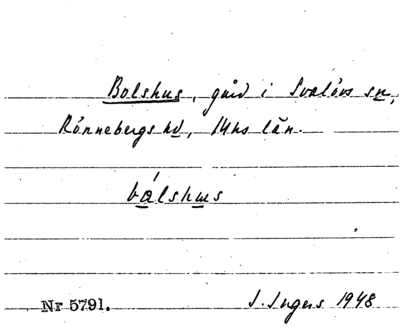 Bolshus, gård i Svalövs sn,
Rönnebergs hd, Mhs län.
bálshus
Nr 5791.
I. Ingers 1948